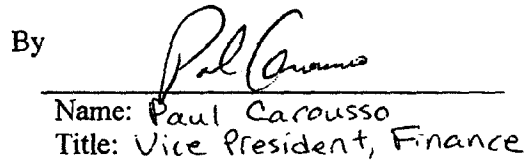 By Paul Carousso
Name: Paul Carousso
Title: Vice President, Finance